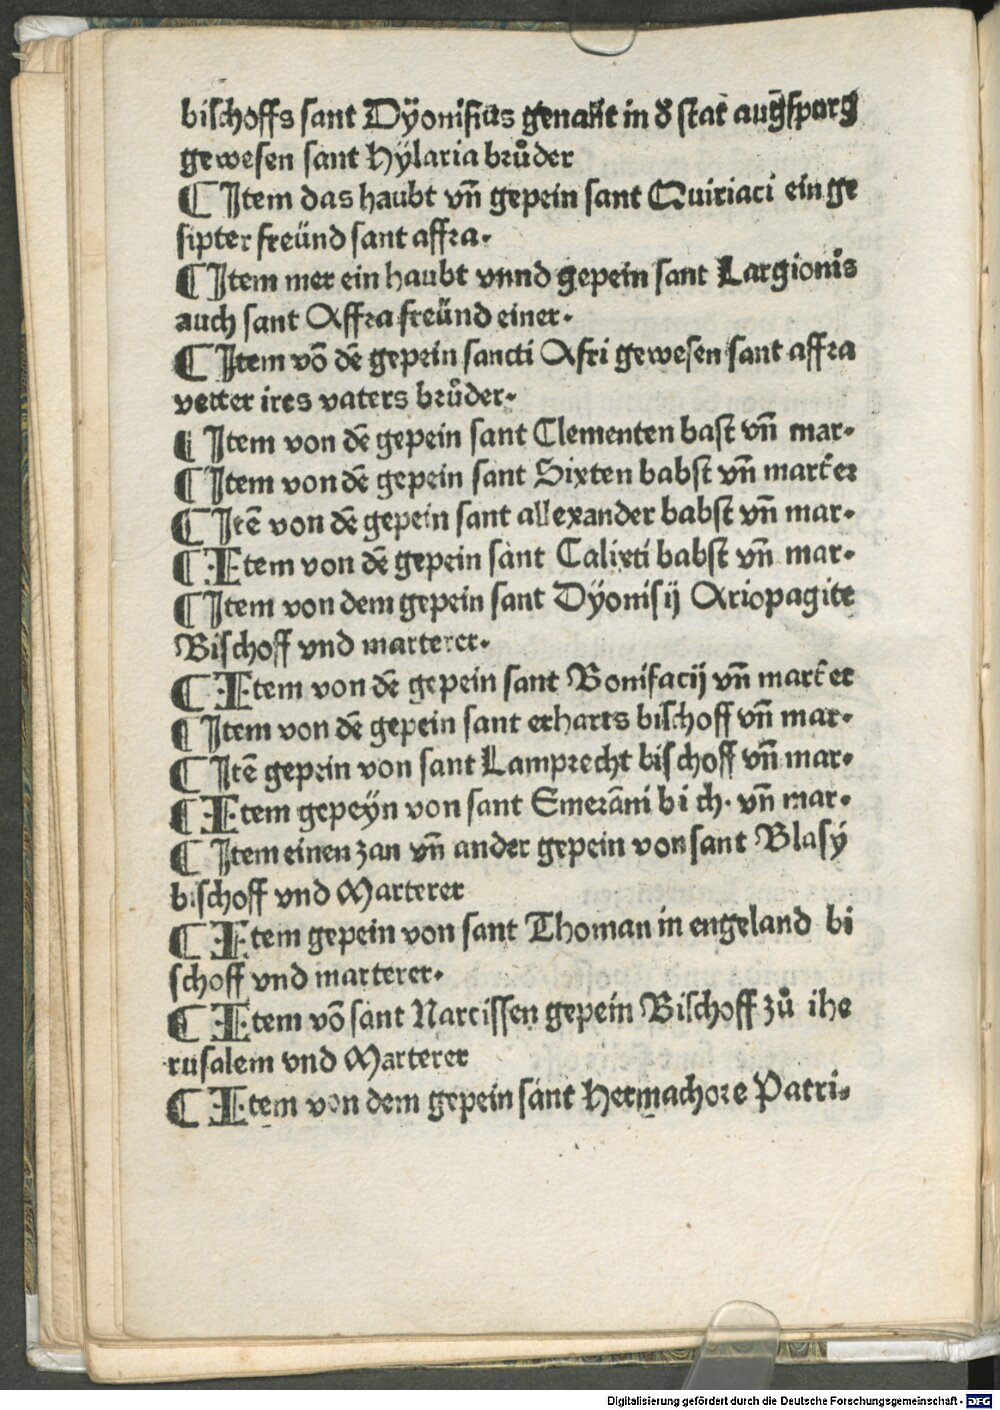 bischoffs sant Dÿonisius genant̄ in ď stat augspurg
gewesen sant Hÿlaria brůder
¶ Item das haubt vn̄ gepein sant Quiriaci ein ge
sipter freünd sant affra.
¶ Item mer ein haubt vnnd gepein sant Largionis
auch sant Affra freünd einer.
¶ Item vō dē gepein sancti Afri gewesen sant affra
vetter ires vaters brůder.
¶ Item von dē gepein sant Clementen bast vn̄ mar.
¶ Item von dē gepein sant Sixten babst vn̄ mart̄er
¶ Itē von dē gepein sant allexander babst vn̄ mar.
¶ Item von dē gepein sant Calixti babst vn̄ mar.
¶ Item von dem gepein sant Dÿonisij Ariopagite
Bischoff vnd marterer.
¶ Item von dē gepein sant Bonifacij vn̄ mart̄er
¶ Item von dē gepein sant erharts bischoff vn̄ mar.
¶ Itē gepein von sant Lamprecht bischoff vn̄ mar.
¶ Item gepeÿn von sant Emerāni bi ch. vn̄ mar.
¶ Item einen zan vn̄ ander gepein von sant Blasÿ
bischoff vnd Marterer
¶ Item gepein von sant Thoman in engeland bi
schoff vnd marterer.
¶ Item vō sant Narcissen gepein Bischoff zů ihe
rusalem vnd Marterer
¶ Item von dem gepein sant Hermachore Patri.
Digitalisierung gefördert durch die Deutsche Forschungsgemeinschaft - DFG